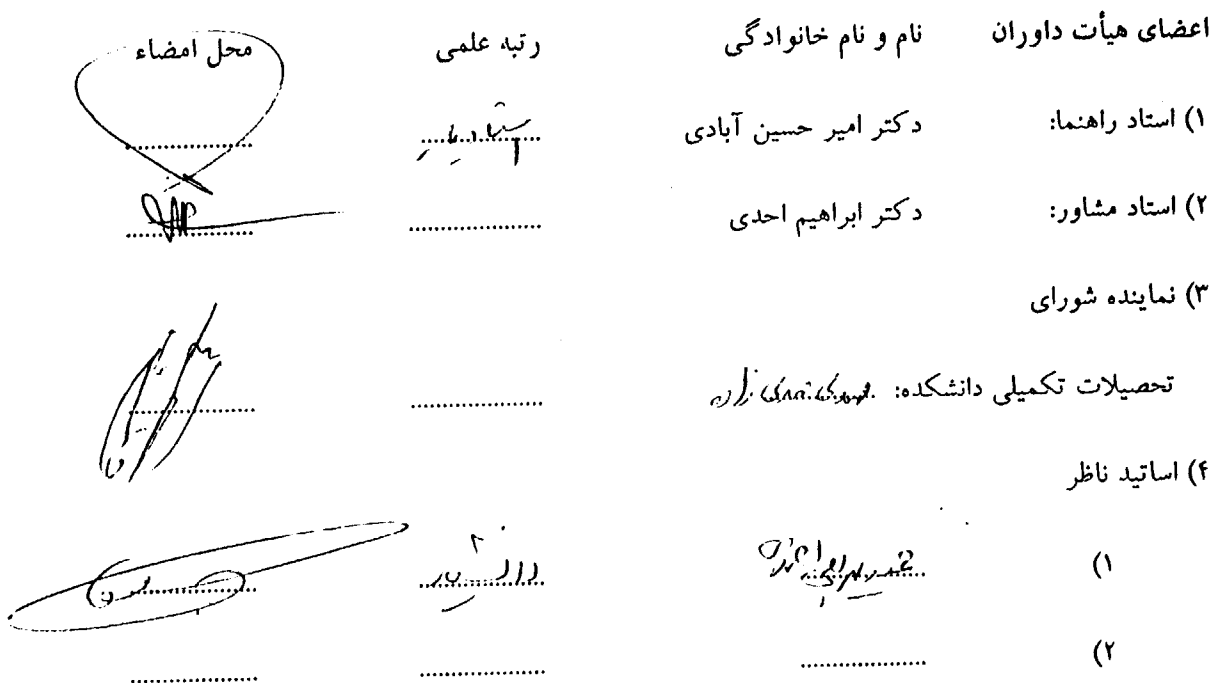 اعضای هیأت داوران نام و نام خانوادگی رتبه علمی محل امضاء
۱) استاد راهنما: دکتر امیر حسین آبادی استادیار
۲) استاد مشاور: دکتر ابراهیم احدی
۳) نماینده شورای
تحصیلات تکمیلی دانشکده:
۴) اساتید ناظر
۱) دانشیار
۲)